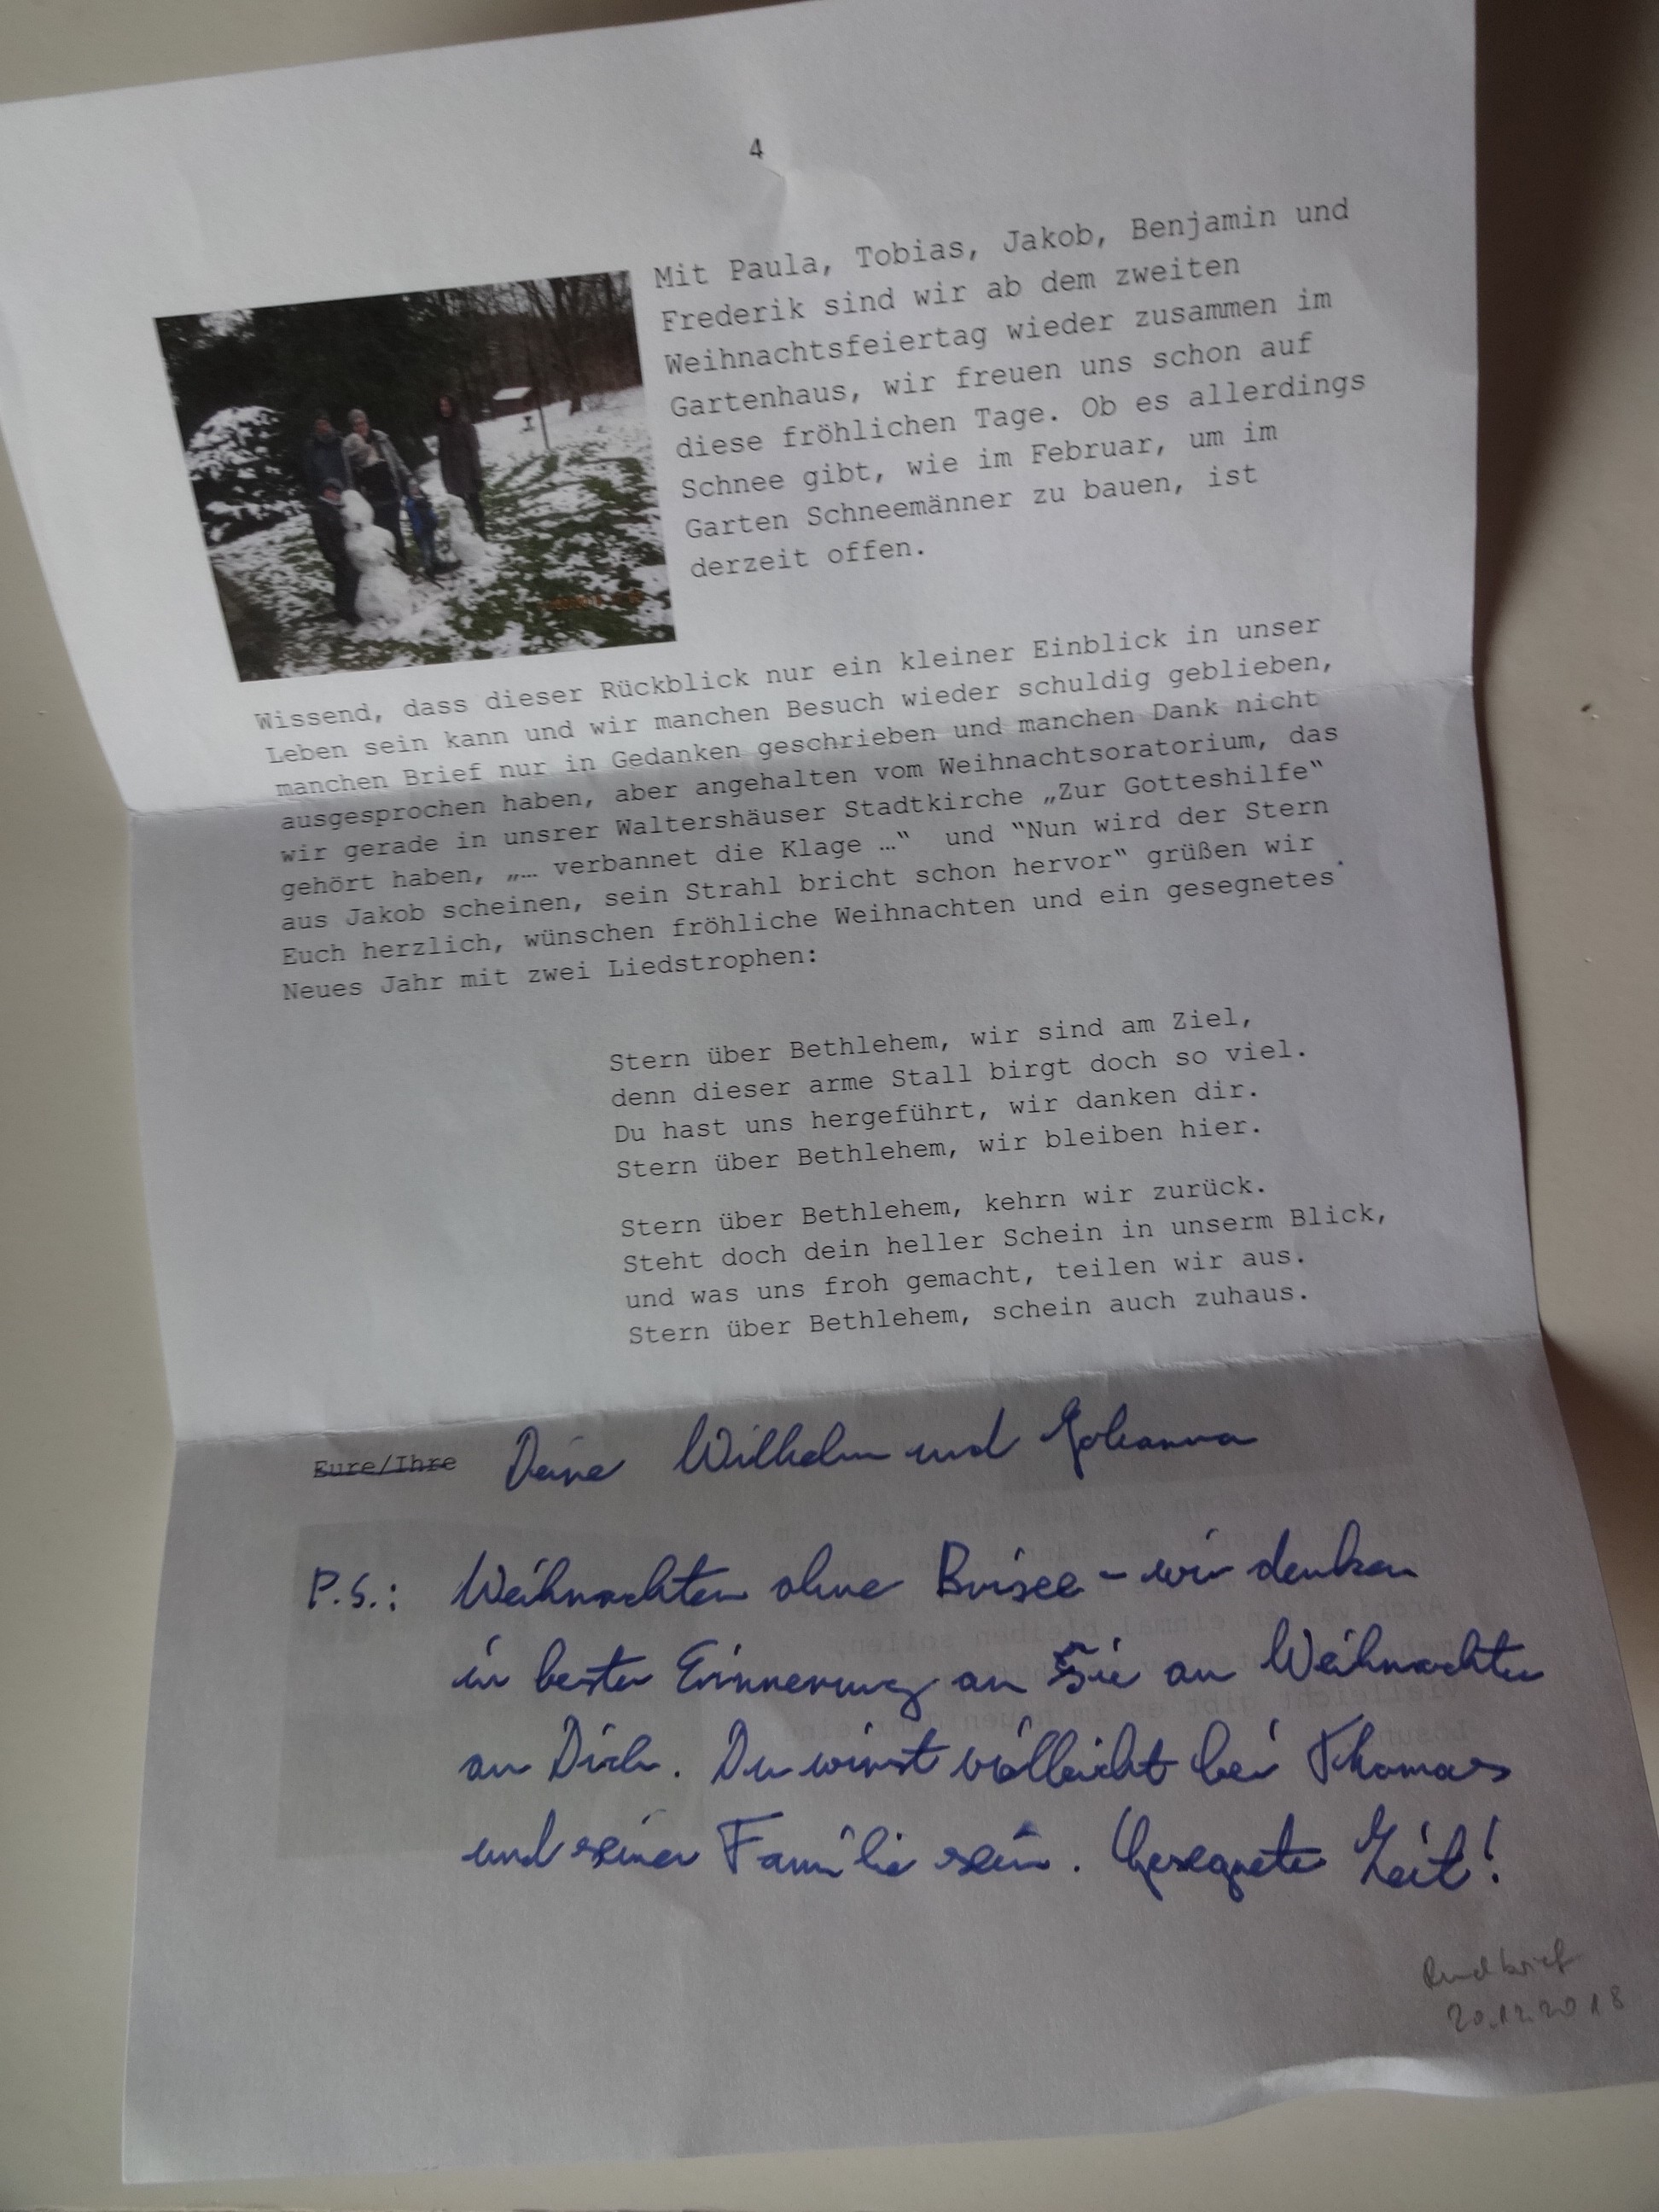 4
Mit Paula, Tobias, Jakob, Benjamin und
Frederik sind wir ab dem zweiten
Weihnachtsfeiertag wieder zusammen im
Gartenhaus, wir freuen uns schon auf
diese fröhlichen Tage. Ob es allerdings
Schnee gibt, wie im Februar, um im
Garten Schneemänner zu bauen, ist
derzeit offen.
Wissend, dass dieser Rückblick nur ein kleiner Einblick in unser
Leben sein kann und wir manchen Besuch wieder schuldig geblieben,
manchen Brief nur in Gedanken geschrieben und manchen Dank nicht
ausgesprochen haben, aber angehalten vom Weihnachtsoratorium, das
wir gerade in unsrer Waltershäuser Stadtkirche „Zur Gotteshilfe“
gehört haben, „… verbannet die Klage …“ und “Nun wird der Stern
aus Jakob scheinen, sein Strahl bricht schon hervor“ grüßen wir
Euch herzlich, wünschen fröhliche Weihnachten und ein gesegnetes
Neues Jahr mit zwei Liedstrophen:
Stern über Bethlehem, wir sind am Ziel,
denn dieser arme Stall birgt doch so viel.
Du hast uns hergeführt, wir danken dir.
Stern über Bethlehem, wir bleiben hier.
Stern über Bethlehem, kehrn wir zurück.
Steht doch dein heller Schein in unserm Blick,
und was uns froh gemacht, teilen wir aus.
Stern über Bethlehem, schein auch zuhaus.
Eure/Ihre Deine Wilhelm und Johanna
P.S.: Weihnachten ohne – wir denken
in bester Erinnerung an Sie an Weihnachten
an Dich. Du wirst vielleicht bei Thomas
und seiner Familie sein. Gesegnete Zeit!
Rundbrief
20.12.2018